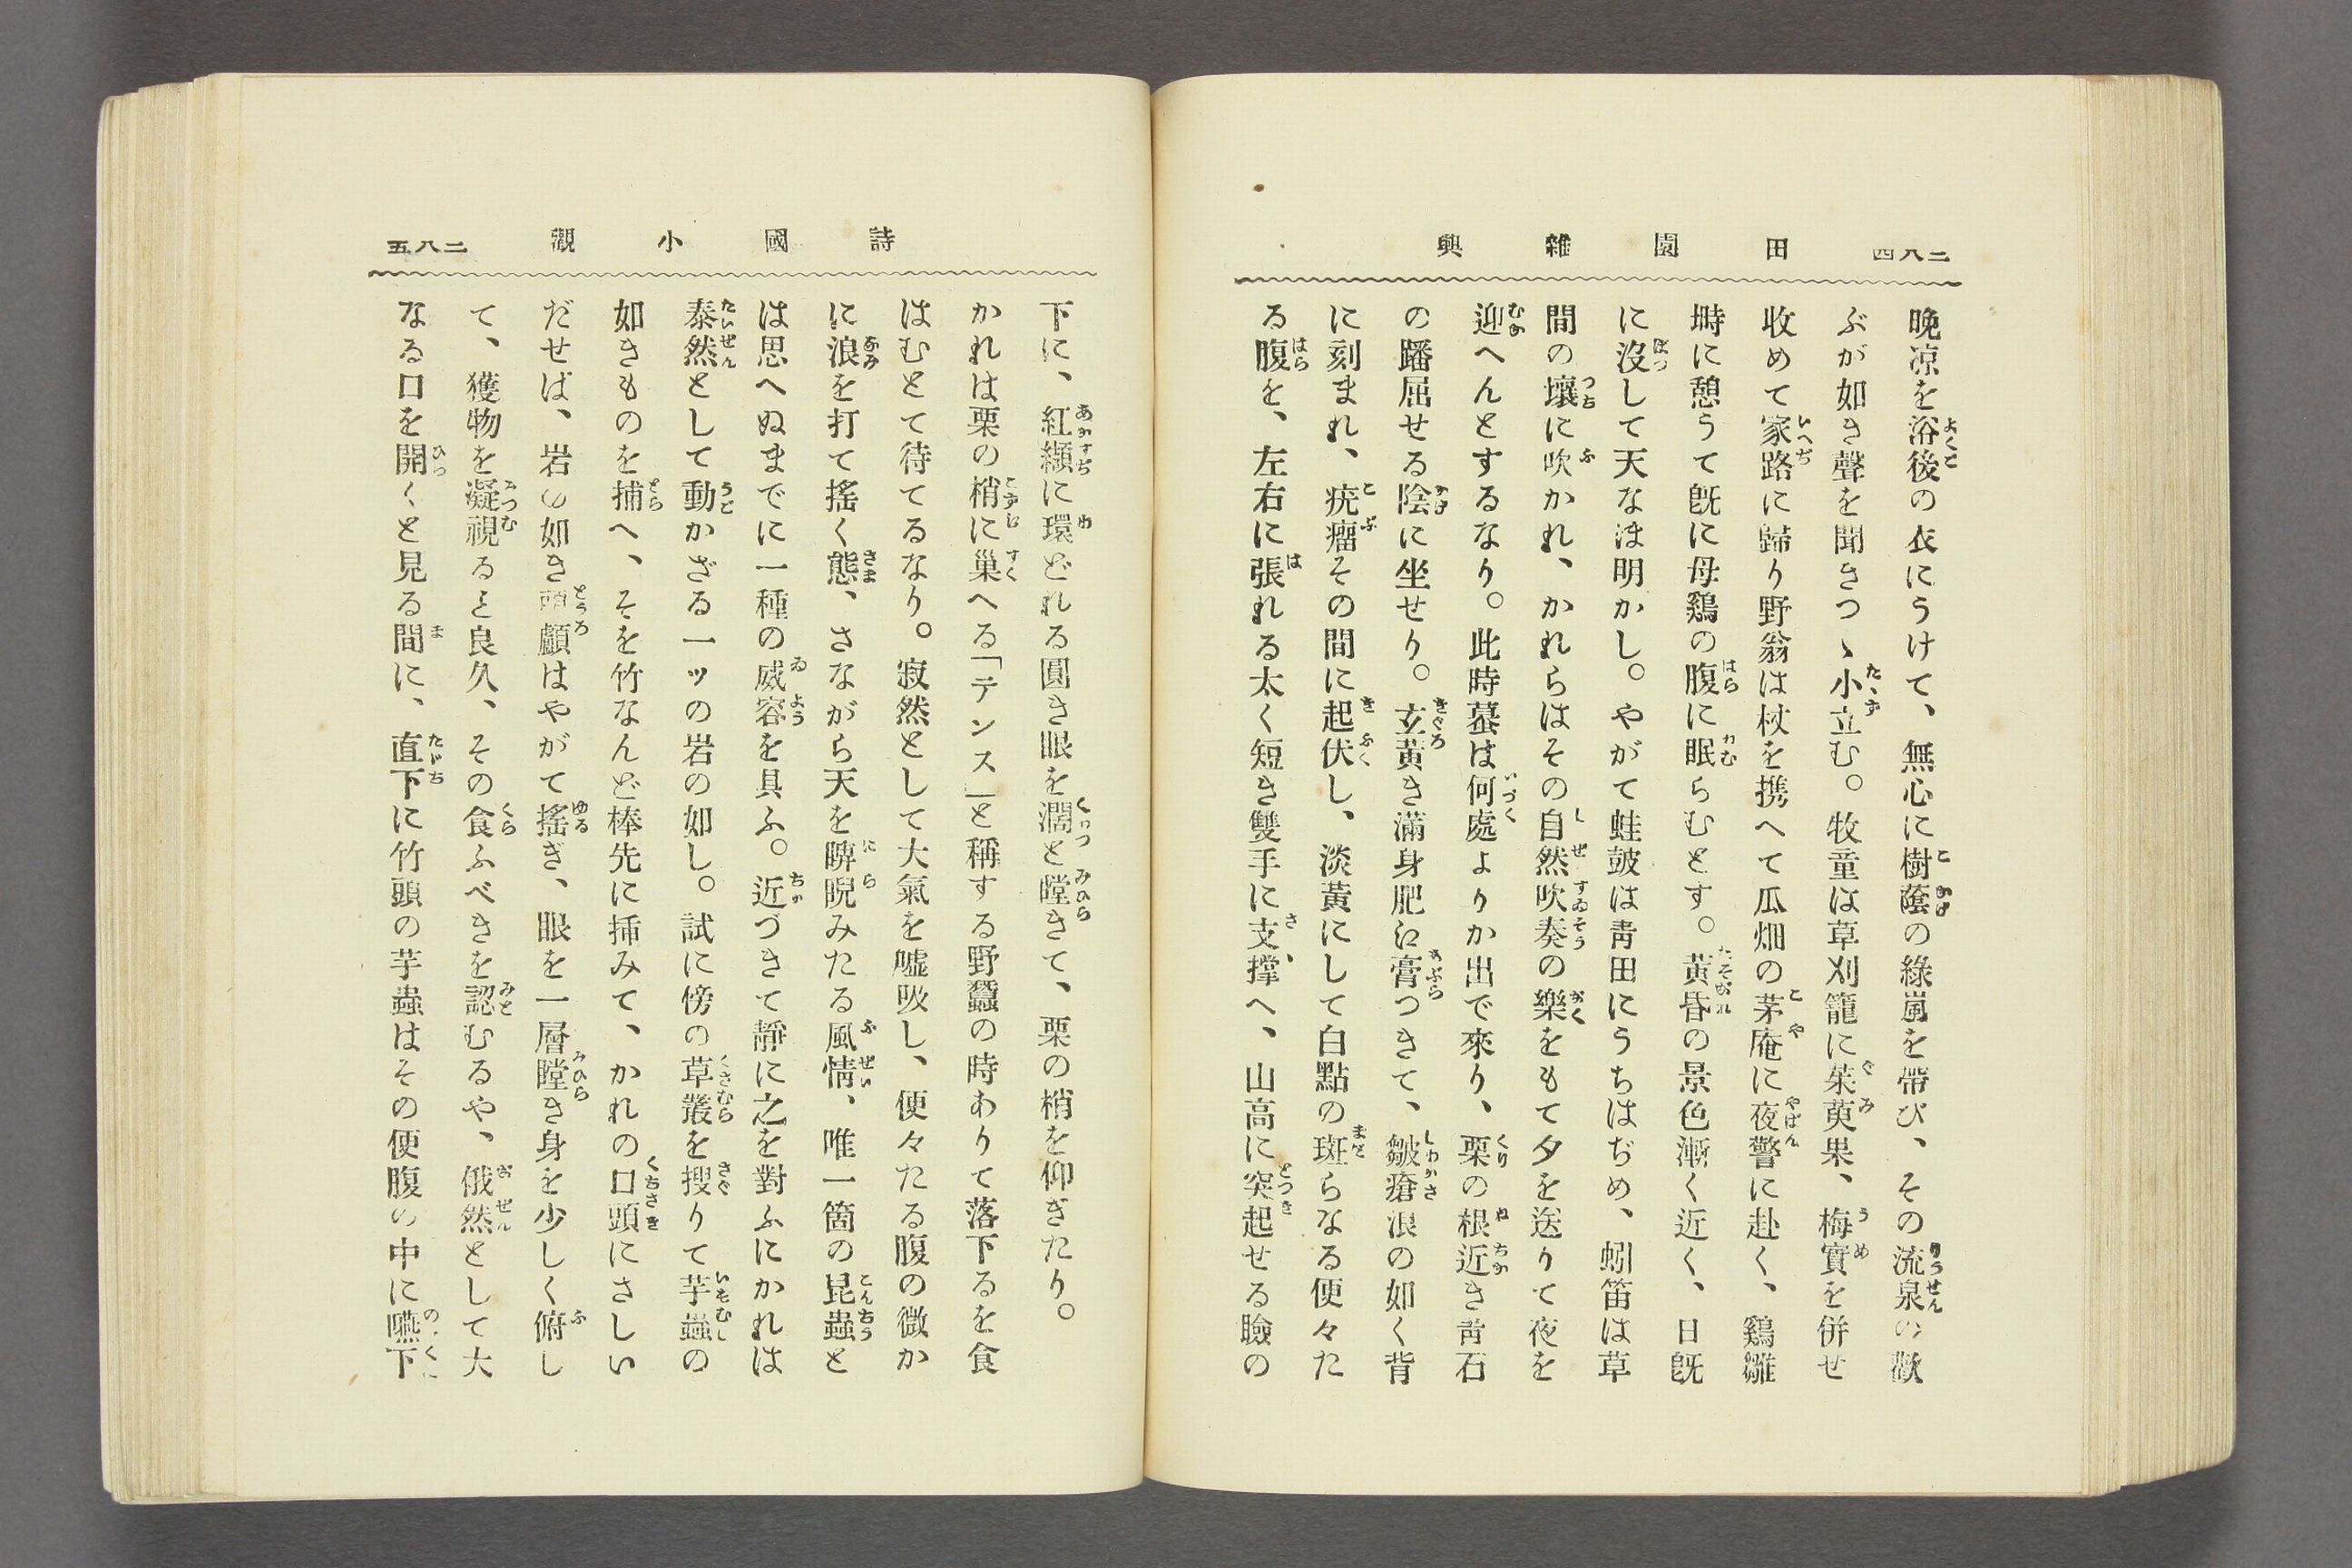 二八四
田園雜興
晩凉を浴後の衣にうけて、無心に樹蔭の綠嵐を帶び、その流泉の歡
ぶが如き聲を聞きつゝ小立む。牧童は草刈籠に茱萸果、梅實を併せ
收めて家路に歸り野翁は杖を携へて瓜畑の茅庵に夜警に赴く、鷄雛
塒に憩うて既に母鷄の腹に眠らむとす。黃昏の景色漸く近く、日既
に沒して天なほ明かし。やがて蛙皷は靑田にうちはぢめ、蚓笛は草
間の壤に吹かれ、かれらはその自然吹奏の樂をもて夕を送りて夜を
迎へんとするなり。此時蟇は何處よりか出で來り、栗の根近き靑石
の蹯屈せる陰に坐せり。玄黃き滿身肥に膏つきて、皺瘡浪の如く背
に刻まれ、疣瘤その間に起伏し、淡黃にして白點の斑らなる便々た
る腹を、左右に張れる太く短き雙手に支撑へ、山高に突起せる瞼の
詩國小觀
二八五
下に、紅纈に環どれる圓き眼を濶と瞠きて、栗の梢を仰ぎたり。
かれは栗の梢に巢へる「テンス」と稱する野蠶の時ありて落下るを食
はむとて待てるなり。寂然として大氣を噓吸し、便々たる腹の微か
に浪を打て搖く態、さながら天を睥睨みたる風情、唯一箇の昆蟲と
は思へぬまでに一種の威容を具ふ。近づきて靜に之を對ふにかれは
泰然として動かざる一ッの岩の如し。試に傍の草叢を搜りて芋蟲の
如きものを捕へ、そを竹なんど棒先に揷みて、かれの口頭にさしい
だせば、岩の如き頭顱はやがて搖ぎ、眼を一層瞠き身を少しく俯し
て、獲物を凝視ると良久、その食ふべきを認むるや、俄然として大
なる口を開くと見る間に、直下に竹頭の芋蟲はその便腹の中に嚥下